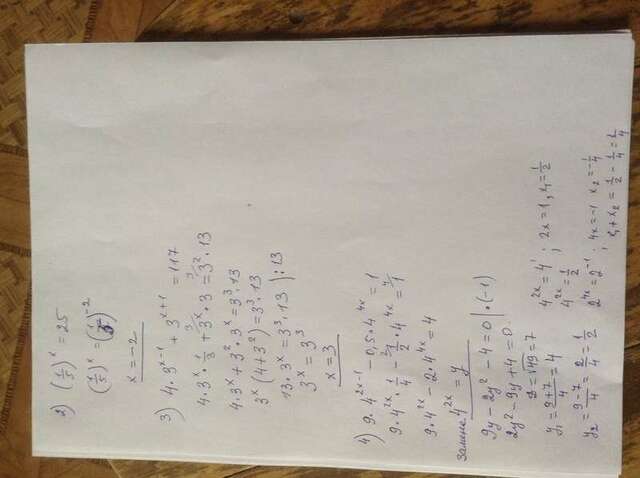 2) (1/5)^x = 25
(1/5)^x = (1/5)^-2
x = -2
3) 4·3^(x-1) + 3^(x+1) = 117
4·3^x · 1/3 + 3^x · 3 = 3^2 · 13
4·3^x + 3^2 · 3^x = 3^3 · 13
3^x (4+3^2) = 3^3 · 13
13 · 3^x = 3^3 · 13 | :13
3^x = 3^3
x = 3
4) 9·4^(2x-1) - 0,5·4^(4x) = 1
9·4^(2x) · 1/4 - 1/2 · 4^(4x) = 1
9·4^(2x) - 2·4^(4x) = 4
Замена 4^(2x) = y
9y - 2y^2 - 4 = 0 | ·(-1)
2y^2 - 9y + 4 = 0
D = √49 = 7
y1 = (9+7)/4 = 4 4^(2x) = 4^1 ; 2x = 1, x1 = 1/2
4^(2x) = 1/2
y2 = (9-7)/4 = 2/4 = 1/2 2^(4x) = 2^-1 ; 4x = -1 x2 = -1/4
x1 + x2 = 1/2 - 1/4 = 1/4